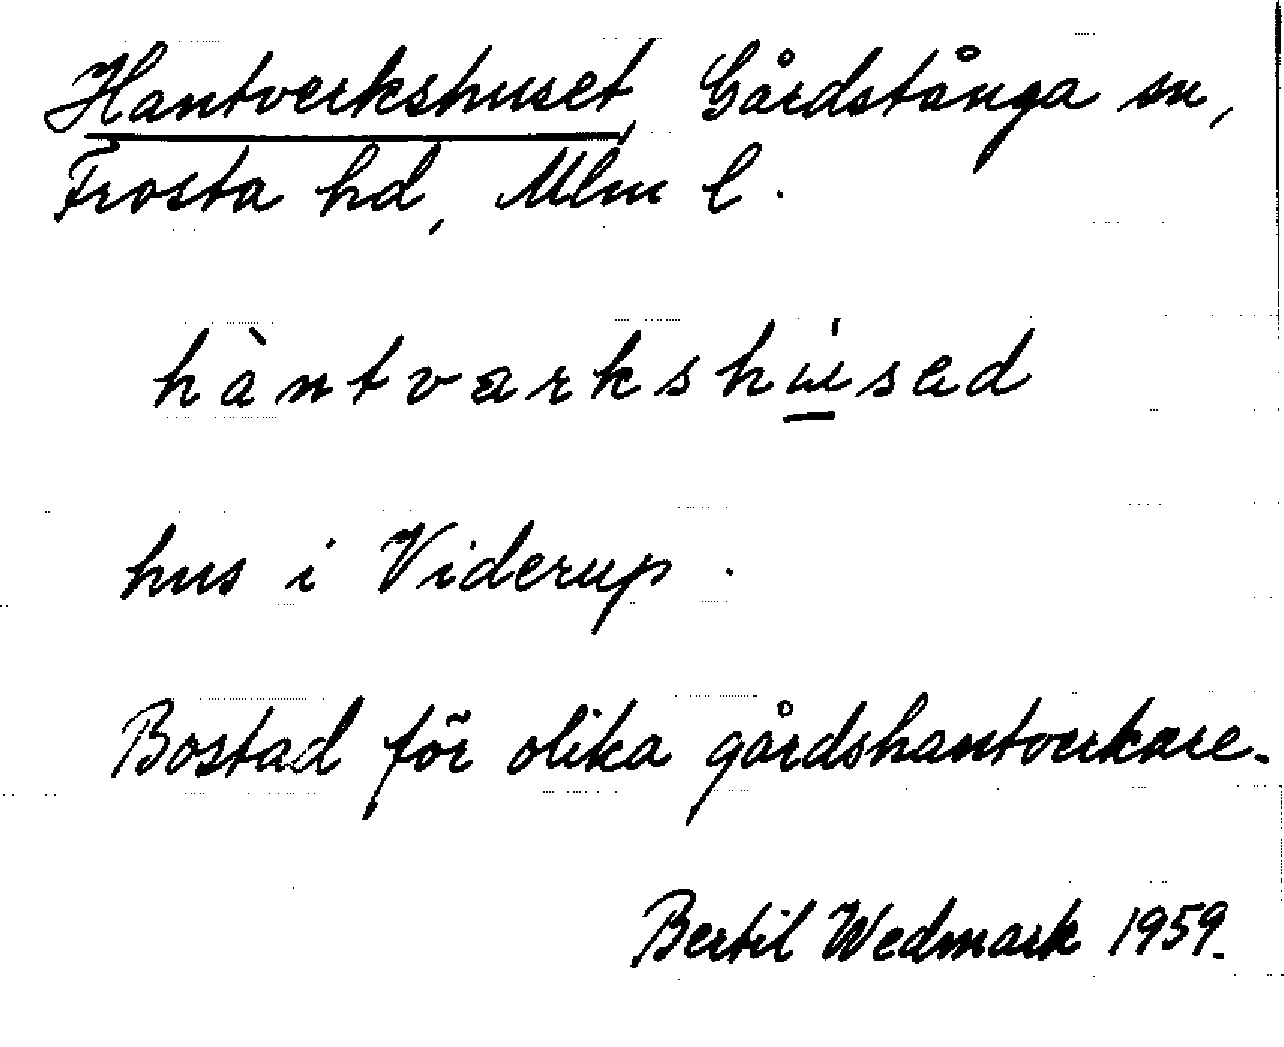 Hantverkshuset, Gårdstånga sn,
Frosta hd, Mlm l.
hàntvarkshúsad
hus i Viderup.
Bostad för olika gårdshantverkare.
Bertil Wedmark 1959.